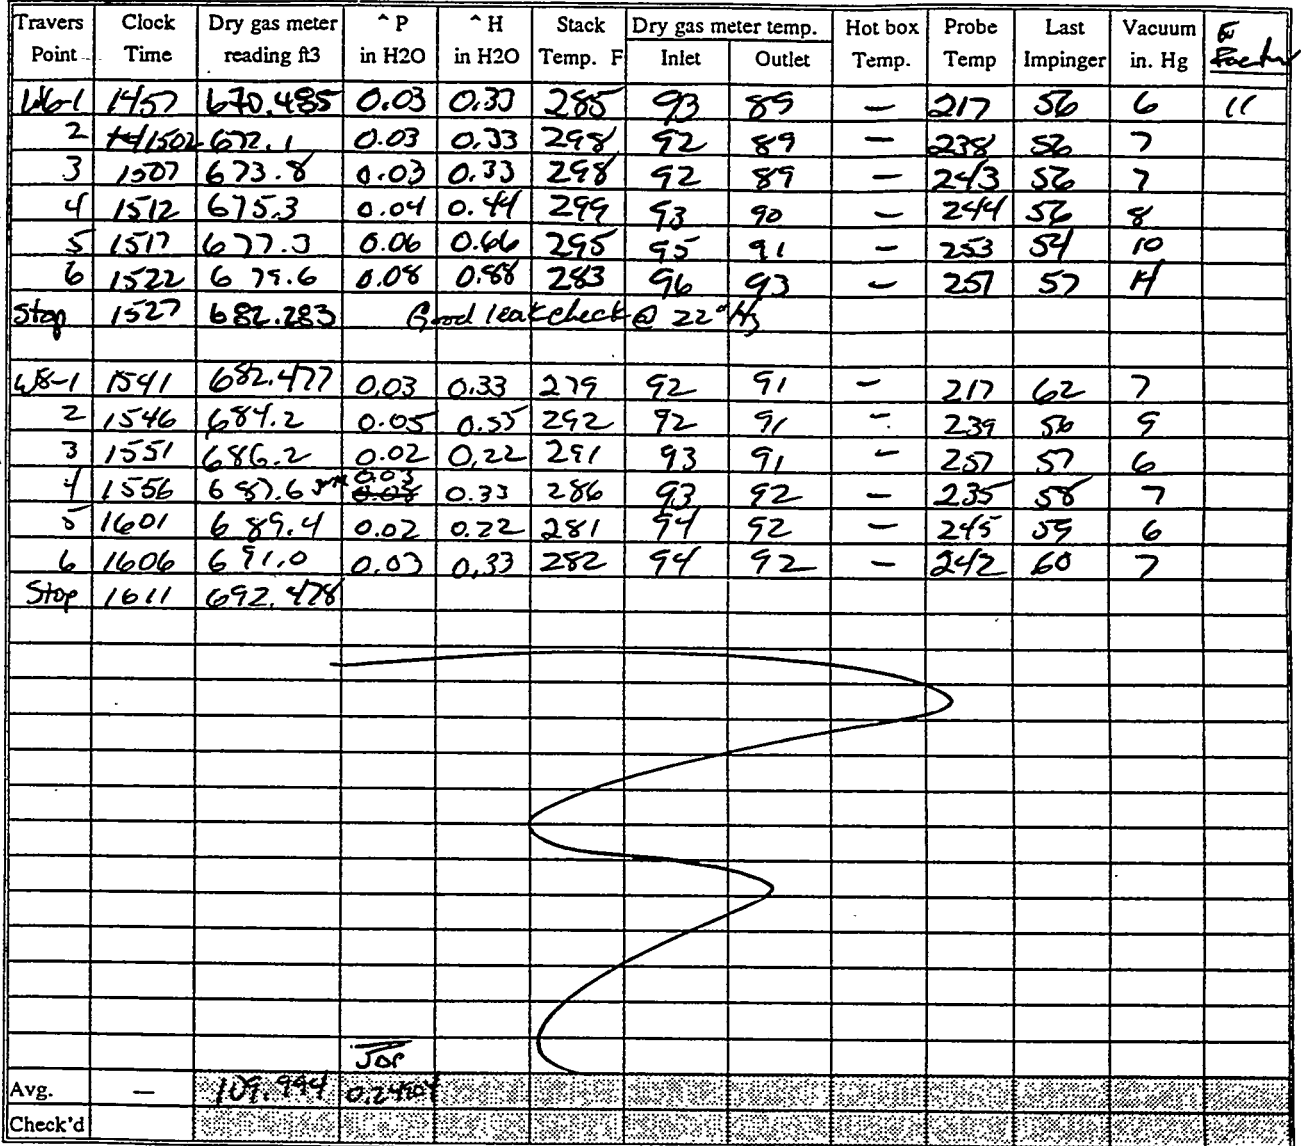 Travers Clock Dry gas meter ^ P ^ H Stack Dry gas meter temp. Hot box Probe Last Vacuum
Point Time reading ft3 in H2O in H2O Temp. F Inlet Outlet Temp. Temp Impinger in. Hg Factor
W6-1 1457 670.485 0.03 0.33 285 93 89 – 217 56 6 11
2 1502 672.1 0.03 0.33 298 92 89 – 238 56 7
3 1507 673.8 0.03 0.33 298 92 89 – 243 56 7
4 1512 675.3 0.04 0.44 299 93 90 – 244 56 8
5 1517 677.3 0.06 0.66 295 95 91 – 253 54 10
6 1522 679.6 0.08 0.88 283 96 93 – 257 57 14
Stop 1527 682.283 Good leak check @ 22"Hg
W8-1 1541 682.477 0.03 0.33 279 92 91 – 217 62 7
2 1546 684.2 0.05 0.55 292 92 91 – 239 56 9
3 1551 686.2 0.02 0.22 291 93 91 – 257 57 6
4 1556 687.6 0.03 0.33 286 93 92 – 235 58 7
5 1601 689.4 0.02 0.22 281 94 92 – 245 59 6
6 1606 691.0 0.03 0.33 282 94 92 – 242 60 7
Stop 1611 692.478
Avg. – 109.994
Check'd